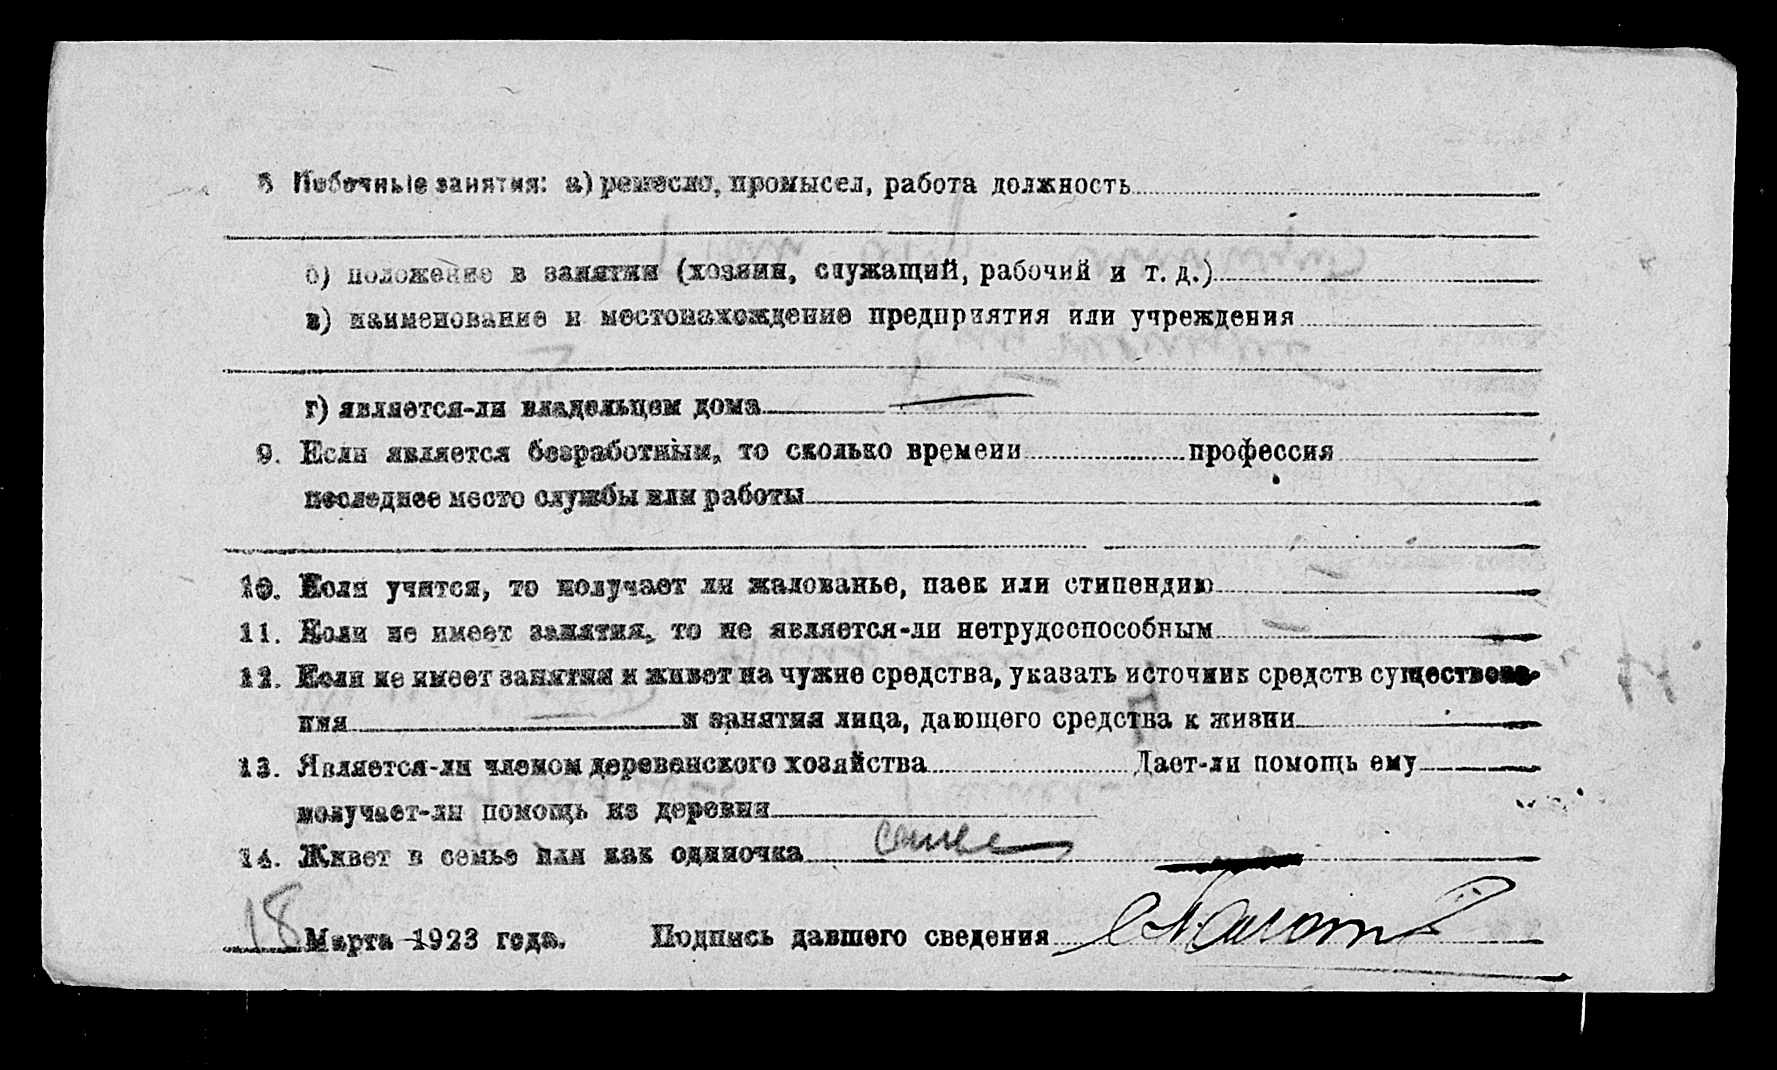 8 Побочные занятия: а) ремесло, промысел, работа должность
б) положение в занятии (хозяин, служащий, рабочий и т. д.)
в) наименование и местонахождение предприятия или учреждения
г) является-ли владельцем дома —
9. Если является безработным, то сколько времени профессия
последнее место службы или работы
10. Если учится, то получает ли жалованье, паек или стипендию
11. Если не имеет занятия, то не является-ли нетрудоспособным
12. Если не имеет занятия и живет на чужие средства, указать источник средств существова-
ния и занятия лица, дающего средства к жизни
13. Является-ли членом деревенского хозяйства Дает-ли помощь ему
получает-ли помощь из деревни
14. Живет в семье или как одиночка семье
18 Марта 1923 года. Подпись давшего сведения